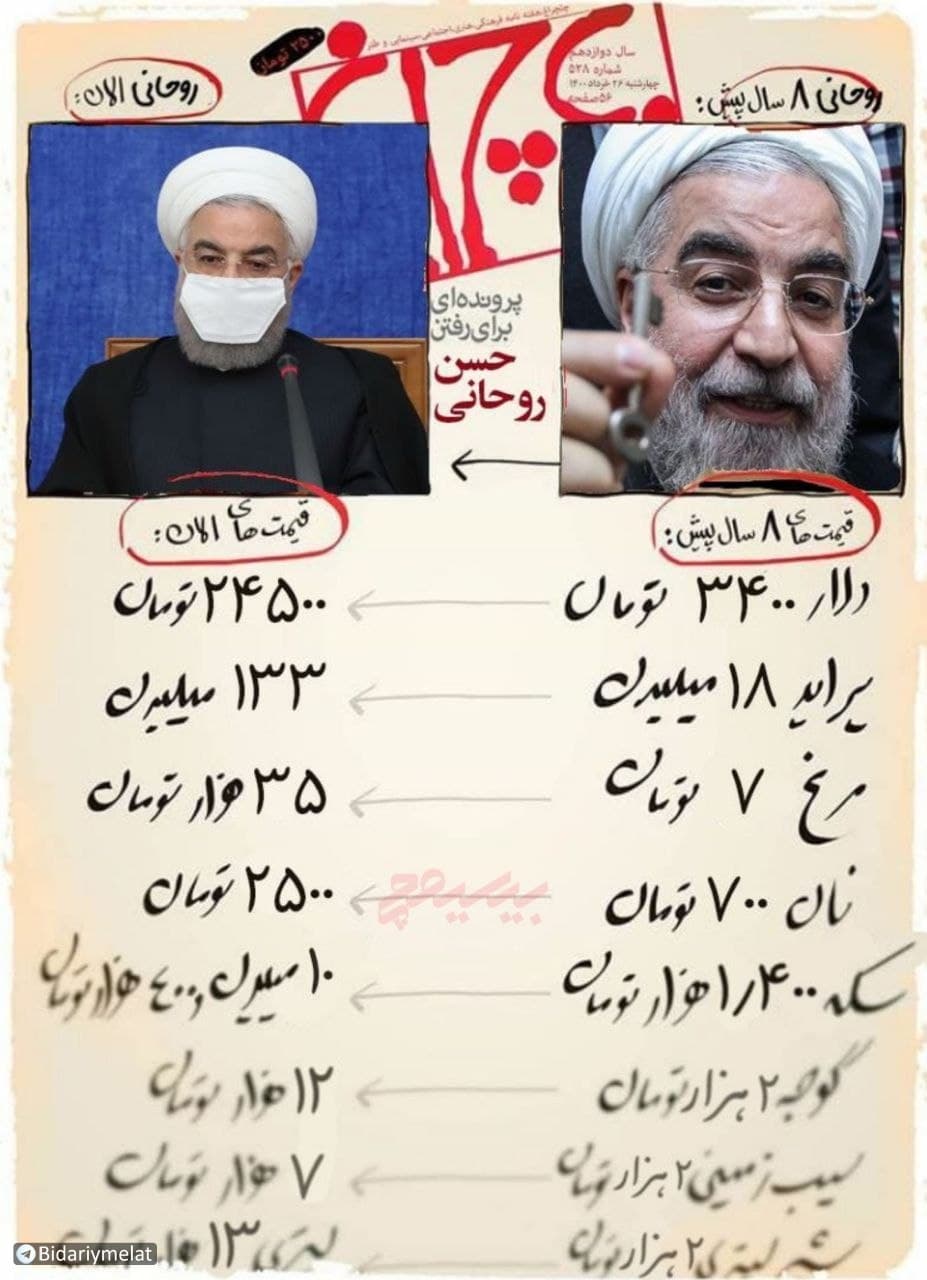 چلچراغ، هفته نامه فرهنگی، هنری، اجتماعی، سینمایی و طنز
۲۵۰۰ تومان
سال دوازدهم
شماره ۵۲۸
چهارشنبه ۲۶ خرداد ۱۴۰۰
۵۶ صفحه
روحانی ۸ سال پیش:
روحانی الان:
پرونده‌ای
برای رفتن
حسن
روحانی
قیمت‌های ۸ سال پیش:
قیمت‌های الان:
دلار ۳۴۰۰ تومان
۲۴۵۰۰ تومان
پراید ۱۸ میلیون
۱۳۳ میلیون
مرغ ۷ تومان
۳۵ هزار تومان
نان ۷۰۰ تومان
۲۵۰۰ تومان
بیسیمچی
سکه ۱/۴۰۰ هزار تومان
۱۰ میلیون و ۴۰۰ هزار تومان
گوجه ۲ هزار تومان
۱۲ هزار تومان
سیب زمینی ۲ هزار تومان
۷ هزار تومان
شیر لیتری ۲ هزار تومان
لیتری ۱۳ هزار تومان
Bidariymelat